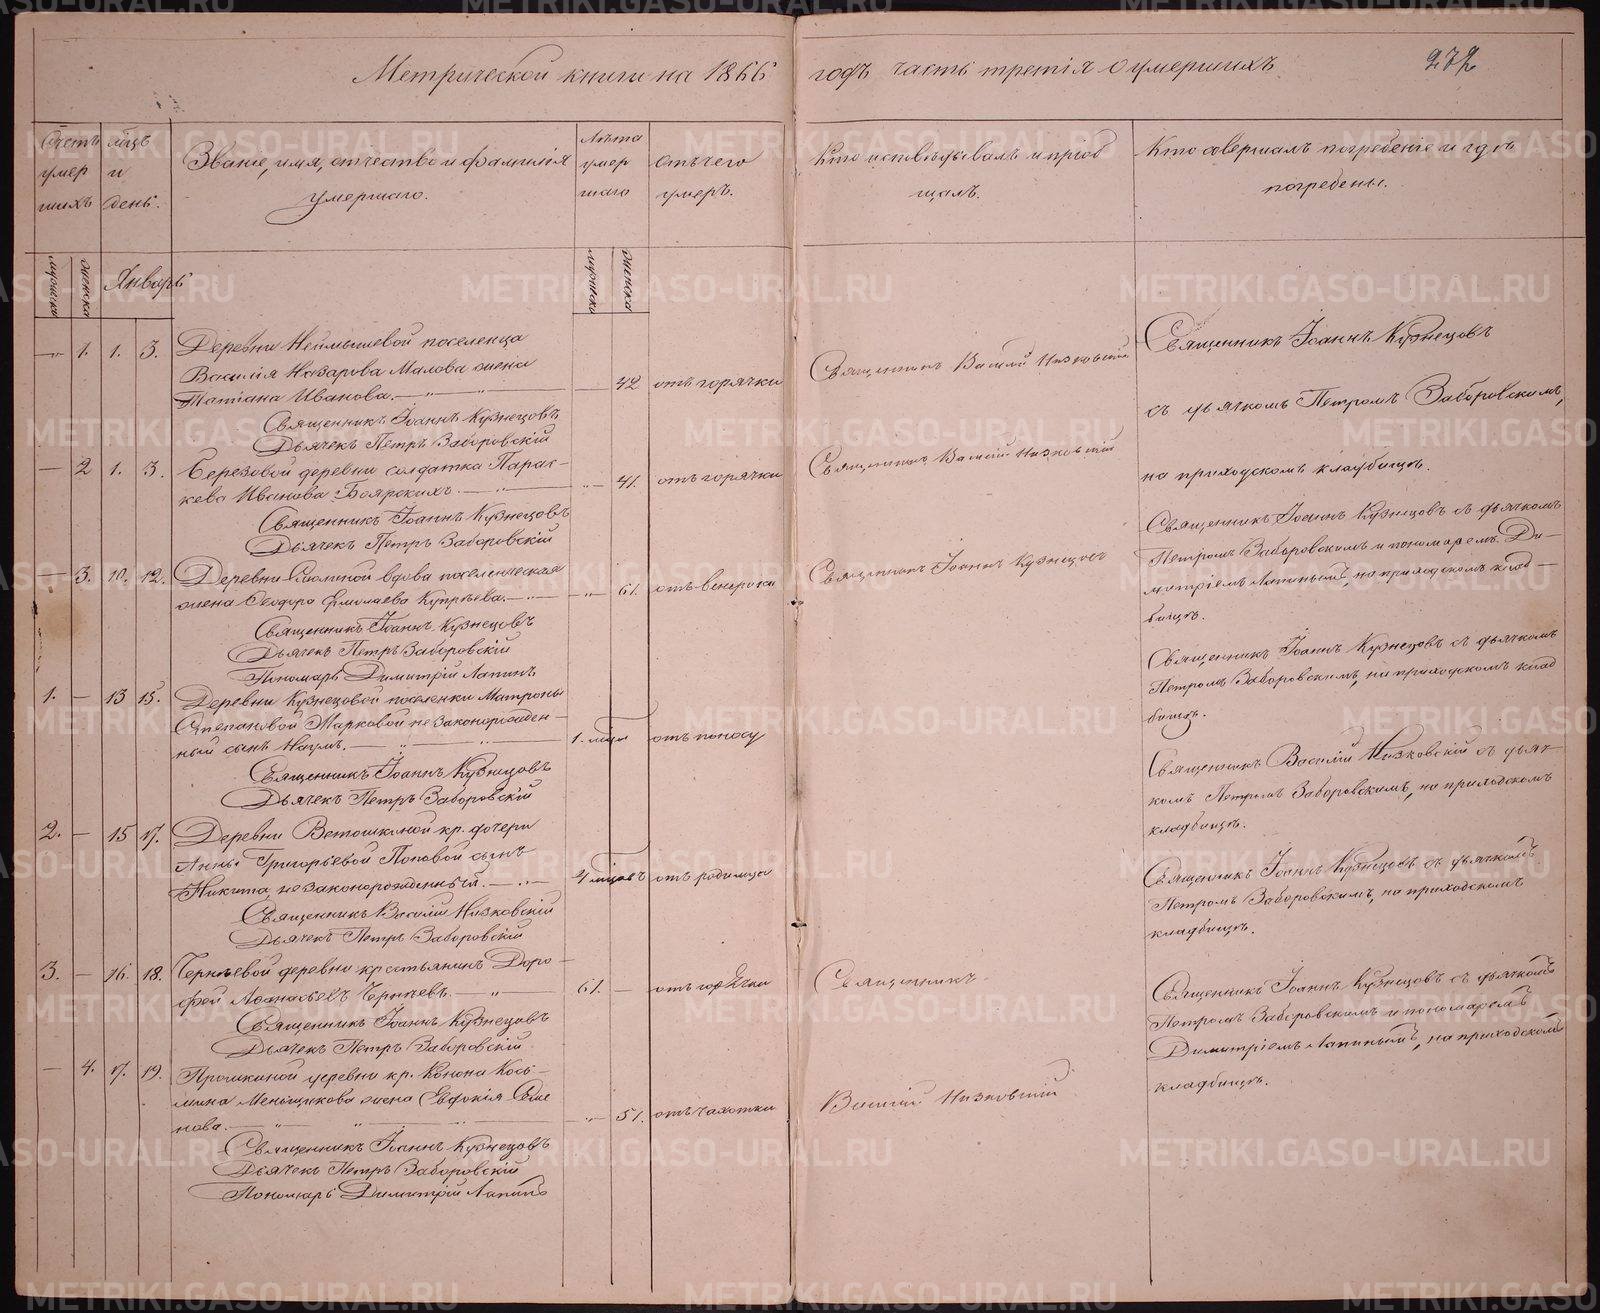 Метрической книги на 1866 годъ часть третія о умершихъ
272
Счетъ умершихъ
мѣцъ и день.
Званіе, имя, отчество и фамилія умершаго.
Лѣта умершаго
отъ чего умеръ.
Кто исповѣдывалъ и пріобщалъ.
Кто совершалъ погребеніе и гдѣ погребены.
мужска
женска
Январь
мужска
женска
1. 1. 3. Деревни Неймышевой поселенца
Василія Назарова Малова жена
Татіана Иванова. 42 отъ горячки
Священникъ Василій Низковскій
Священникъ Іоаннъ Кузнецовъ
Дьячекъ Петръ Заборовскій
Священникъ Іоаннъ Кузнецовъ
съ дьячкомъ Петромъ Заборовскимъ,
на приходскомъ кладбищѣ.
2 1. 3. Березовой деревни солдатка Парас-
кева Иванова Боярскихъ. 41. отъ горячки
Священникъ Василій Низковскій
Священникъ Іоаннъ Кузнецовъ
Дьячекъ Петръ Заборовскій
Священникъ Іоаннъ Кузнецовъ съ дьячкомъ
Петромъ Заборовскимъ и пономаремъ Ди-
митріемъ Лапинымъ, на приходскомъ клад-
бищѣ.
3. 10. 12. Деревни вдова поселенческая
жена Ѳедора Купрѣева. 61. отъ
Священникъ Іоаннъ Кузнецовъ
Священникъ Іоаннъ Кузнецовъ
Дьячекъ Петръ Заборовскій
Пономарь Димитрій Лапинъ
Священникъ Іоаннъ Кузнецовъ съ дьячкомъ
Петромъ Заборовскимъ, на приходскомъ клад
бищѣ.
1. 13 15. Деревни Кузнецовой поселенки Матроны
Степановой Марковой незаконорожден-
ный сынъ Наумъ. 1. мѣца отъ поносу
Священникъ Іоаннъ Кузнецовъ
Дьячекъ Петръ Заборовскій
Священникъ Василій Низковскій съ дьяч-
комъ Петромъ Заборовскимъ, на приходскомъ
кладбищѣ.
2. 15 17. Деревни Ветошкиной кр. дочери
Анны Григорьевой Поповой сынъ
Никита, незаконорожденный. 4 мѣцовъ отъ родимца
Священникъ Василій Низковскій
Дьячекъ Петръ Заборовскій
Священникъ Іоаннъ Кузнецовъ съ дьячкомъ
Петромъ Заборовскимъ, на приходскомъ
кладбищѣ.
3. 16. 18. Чернѣевой деревни крестьянинъ Доро-
фей Афанасьевъ Чернѣевъ. 61. отъ горячки
Священникъ
Священникъ Іоаннъ Кузнецовъ
Дьячекъ Петръ Заборовскій.
Священникъ Іоаннъ Кузнецовъ съ дьячкомъ
Петромъ Заборовскимъ и пономаремъ
Димитріемъ Лапинымъ, на приходскомъ
кладбищѣ.
4. 17. 19. Прошкиной деревни кр. Конона Кось-
мина Меньщикова жена Евфокія Семе
нова. 51. отъ чахотки
Василій Низковскій
Священникъ Іоаннъ Кузнецовъ
Дьячекъ Петръ Заборовскій
Пономарь Димитрій Лапинъ
METRIKI.GASO-URAL.RU